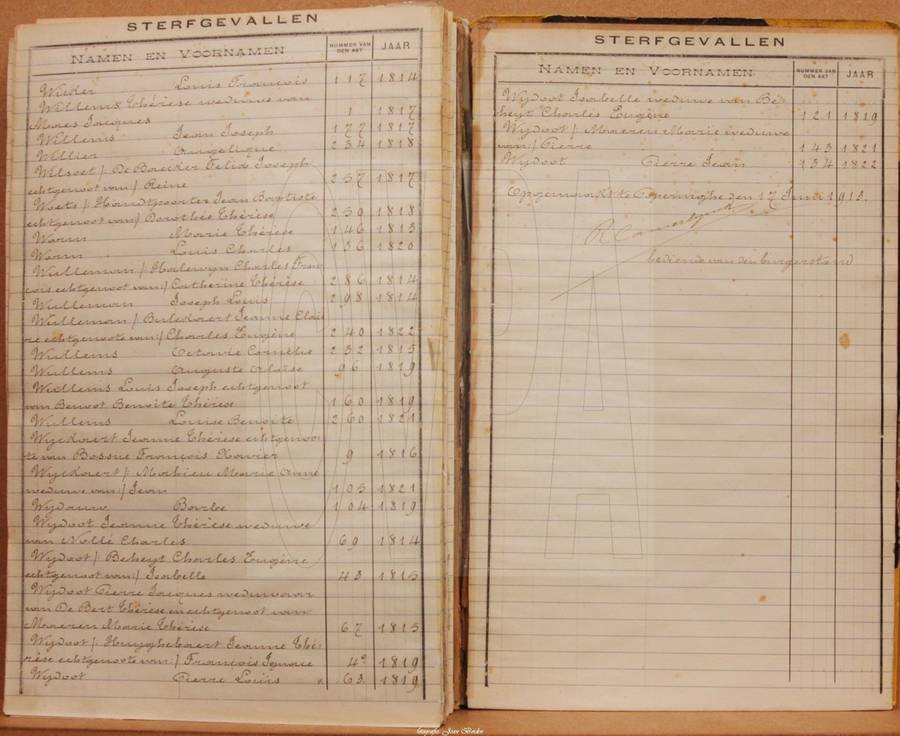 STERFGEVALLEN
NAMEN EN VOORNAMEN NUMMER VAN DEN AKT JAAR
Wicker Louis François 117 1814
Willems Thérèse weduwe van
Maes Jacques 1 1817
Willems Jean Joseph 177 1817
Willier Angelique 234 1818
Wilsoet /: De Baecker Felix Joseph
echtgenoot van :/ Reine 257 1817
Woets / Handtpoorter Jean Baptiste
echtgenoot van :/ Dorothée Thérèse 259 1818
Worm Marie Thérèse 146 1813
Worm Louis Charles 136 1820
Wulleman /: Halewyn Charles Fran-
cois echtgenoot van :/ Catherine Thérèse 286 1814
Wulleman Joseph Louis 298 1814
Wulleman /: Bulckaert Jeanne Clai
re echtgenoote van :/ Charles Eugène 240 1822
Wullems Octavie Cornélie 232 1815
Wullems Auguste Aloïse 96 1819
Wullems Louis Joseph echtgenoot
van Benoot Benoîte Thérèse 160 1819
Wullems Louise Benoîte 260 1821
Wyckaert Jeanne Thérèse echtgenoo
te van Bossue François Xavier 9 1816
Wyckaert /: Mahieu Marie Anne
weduwe van :/ Jean 103 1821
Wydauw Barbe 104 1819
Wydoot Jeanne Thérèse weduwe
van Nollé Charles 69 1814
Wydoot /: Beheyt Charles Eugène
echtgenoot van :/ Isabelle 43 1815
Wydoot Pierre Jacques weduwaar
van De Bert Thérèse en echtgenoot van
Maeren Marie Thérèse 67 1815
Wydoot /: Huyghebaert Jeanne Thé-
rèse echtgenoote van :/ François Ignace 1819
Wydoot Pierre Louis 63 1819
STERFGEVALLEN
NAMEN EN VOORNAMEN NUMMER VAN DEN AKT JAAR
Wydoot Isabelle weduwe van Be-
heyt Charles Eugène 121 1819
Wydoot /: Maeren Marie weduwe
van :/ Pierre 143 1821
Wydoot Pierre Jean 134 1822
Opgemaakt te Poperinghe den 17 Juni 1913.
bediende van den burgerstand
fotografie: Joan Brodin